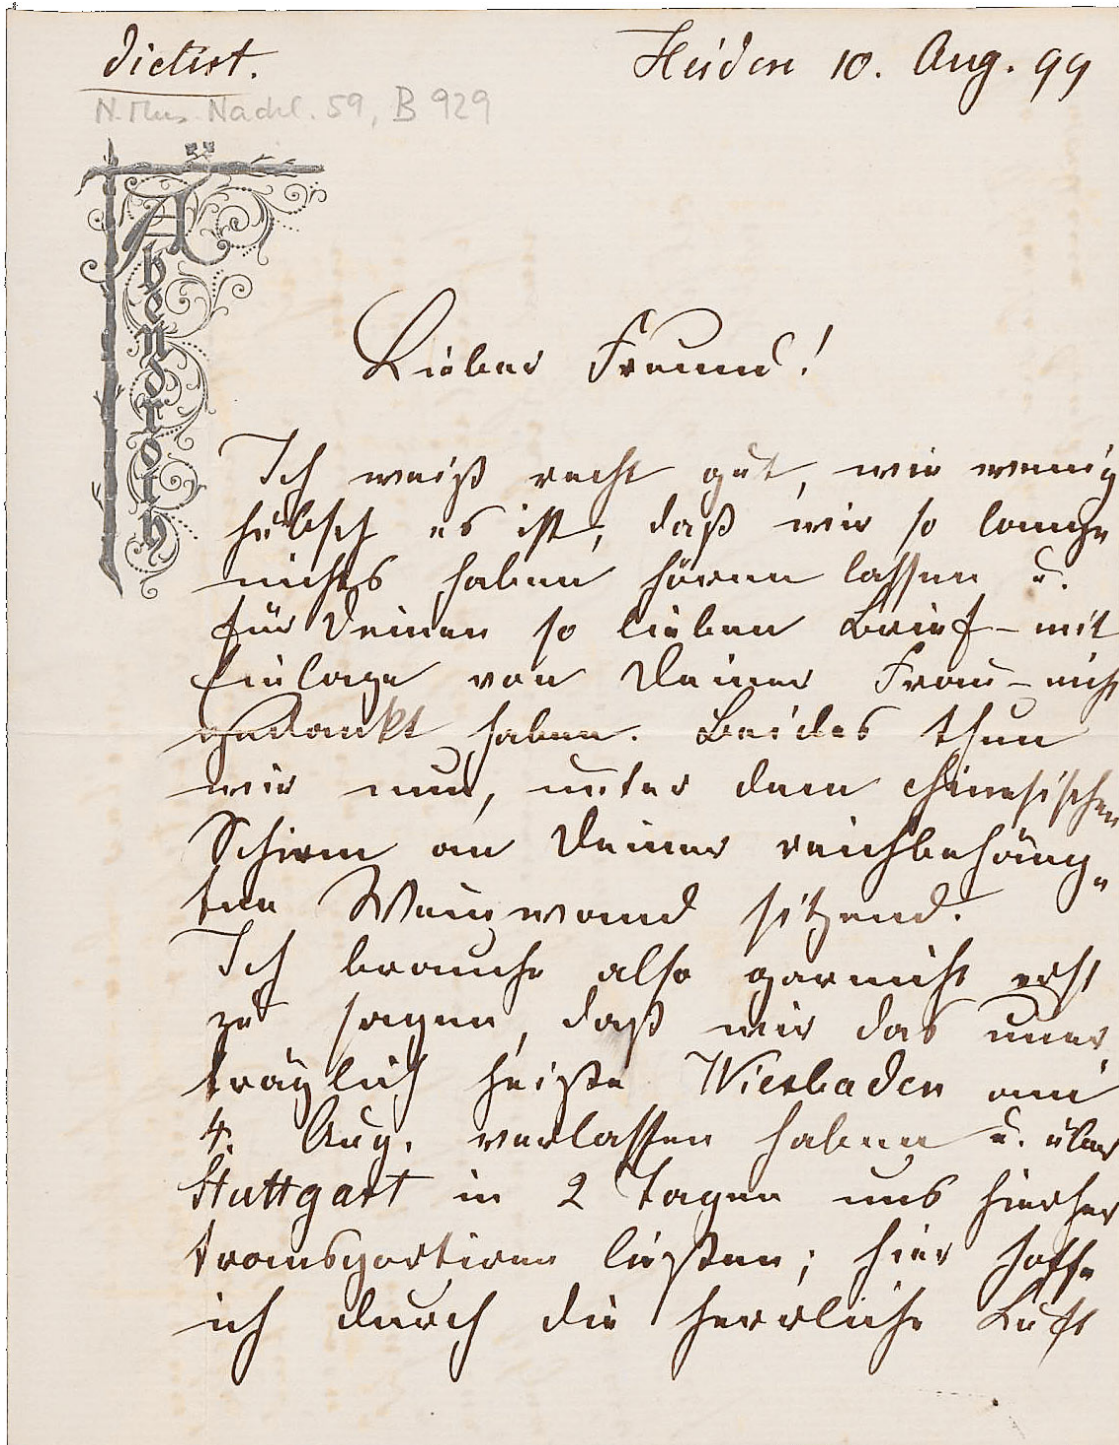 dictirt.
Heiden 10. Aug. 99
N. Mus. Nachl. 59, B 929
Abendroth
Lieber Freund!
Ich weiß recht gut, wie wenig
hübsch es ist, daß wir so lange
nichts haben hören lassen u.
für Deinen so lieben Brief – mit
Einlage von Deiner Frau – nicht
gedankt haben. Beides thun
wir nun, unter dem chinesischen
Schirm an Deiner reichbehäng-
ten Weinwand sitzend.
Ich brauche also garnicht erst
zu sagen, daß wir das uner-
träglich heiße Wiesbaden am
4. Aug. verlassen haben u. über
Stuttgart in 2 Tagen uns hierher
transportiren ließen; hier hoffe
ich durch die herrliche Luft